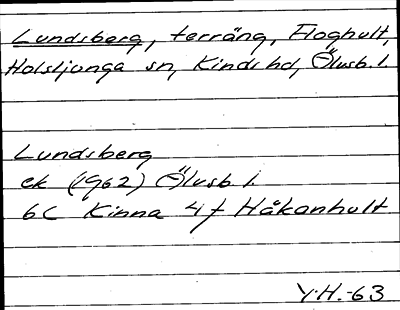 Lundsberg, terräng, Floghult,
Holsljunga sn, Kinds hd, Älvsb. l.
Lundsberg
ek (1962) Älvsb l.
6C Kinna 4f Håkanhult
Y.H.-63